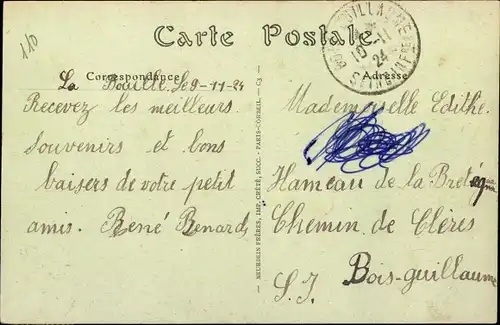 110
Carte Postale
BOIS GUILLAUME
10 - 11
24
SEINE INFRE
Correspondance
Adresse
La Bouille, le 9-11-24
Recevez les meilleurs
souvenirs et bons
baisers de votre petit
amis. René Benard
NEURDEIN FRÈRES, IMP. CRÉTÉ, SUCC. - PARIS-CORBEIL - C3 -
Mademoiselle Edithe.
Hameau de la Bretèque
Chemin de Clères
Bois-guillaume
S. I.